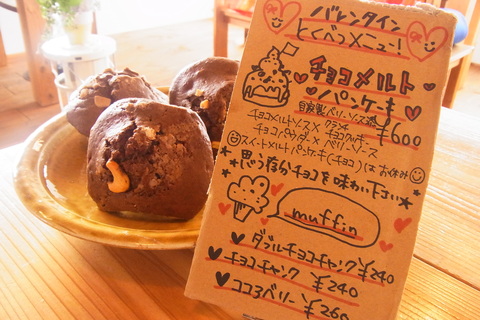 バレンタイン
とくべつメニュー!
チョコメルト
パンケーキ
自家製ベリーソース添 ¥600
チョコメルトソース×クランチチョコクッキー
チョコパウダー×ベリーソース
スイートメルトパンケーキ(チョコ)はお休み
★思う存分チョコを味わって下さい★
muffin
♥ダブルチョコチャンク ¥240
♥チョコチャンク ¥240
♥ココろベリー ¥260